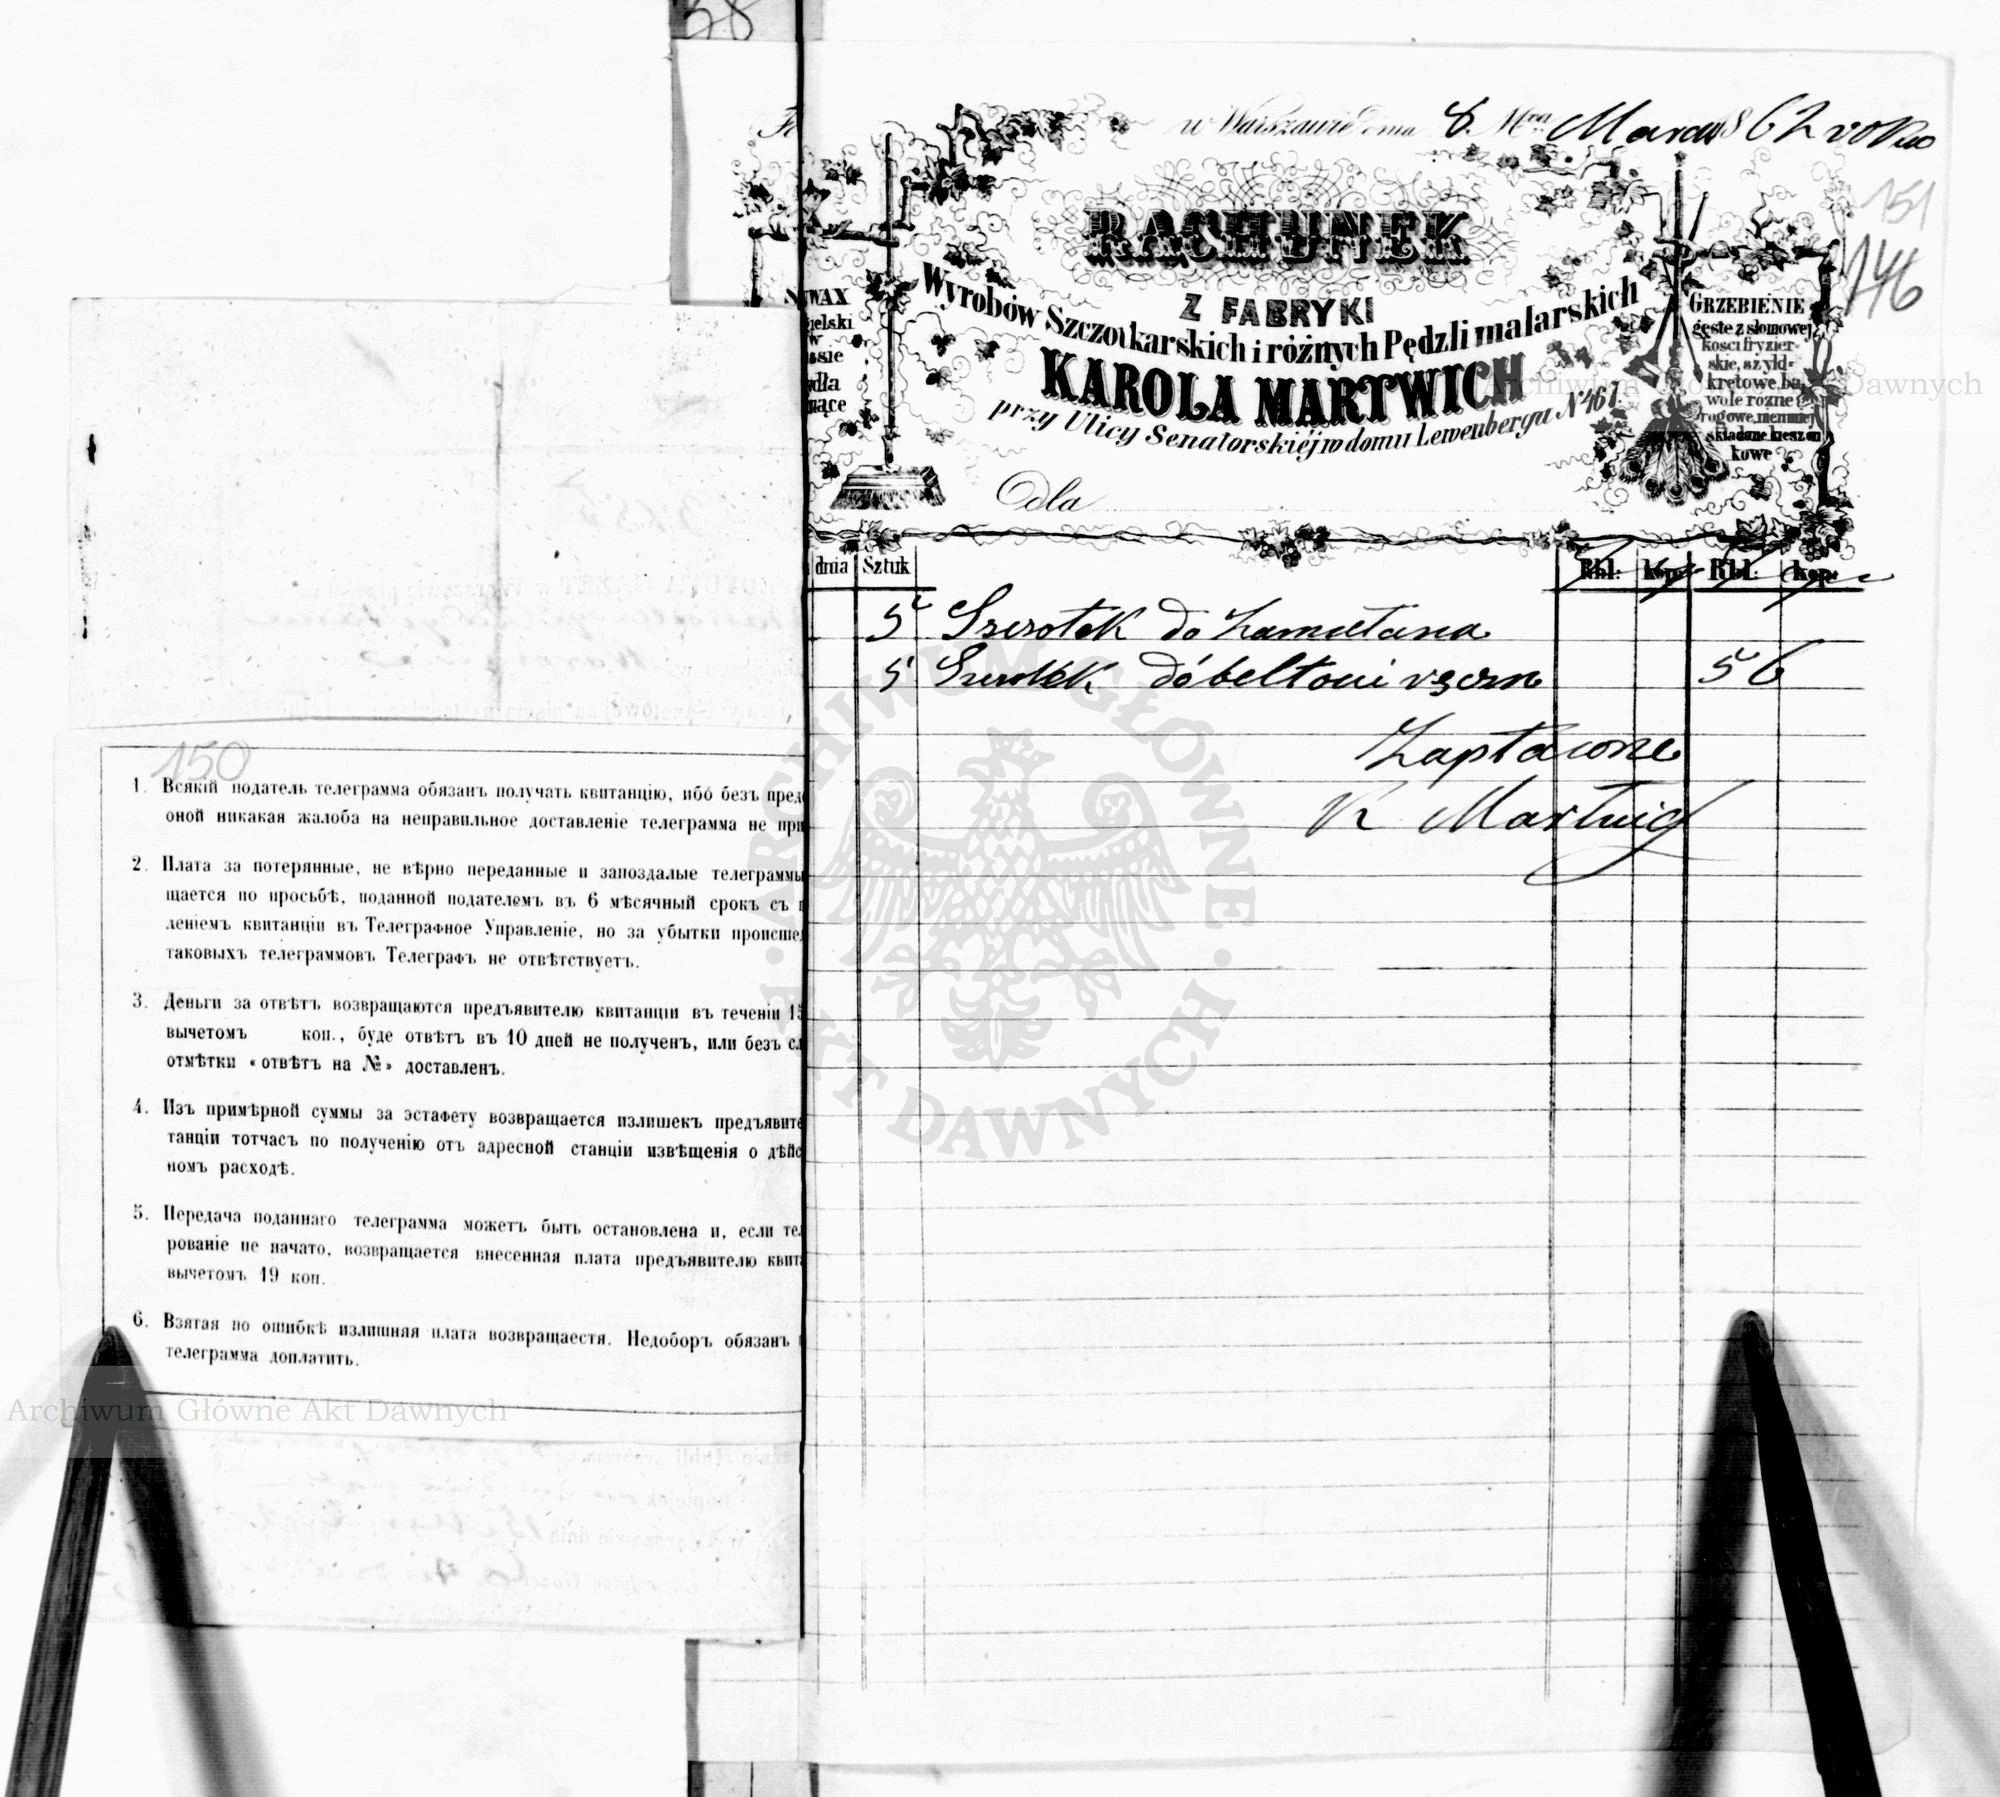 38
150
1. Всякій податель телеграмма обязанъ получать квитанцію, ибо безъ пред
оной никакая жалоба на неправильное доставленіе телеграмма не при
2. Плата за потерянные, не вѣрно переданные и запоздалые телеграммы
щается по просьбѣ, поданной подателемъ въ 6 мѣсячный срокъ съ п
деніемъ квитанціи въ Телеграфное Управленіе, но за убытки происше
таковыхъ телеграммовъ Телеграфъ не отвѣтствуетъ.
3. Деньги за отвѣтъ возвращаются предъявителю квитанціи въ теченіи 15
вычетомъ коп., буде отвѣтъ въ 10 дней не полученъ, или безъ сл
отмѣтки «отвѣтъ на №» доставленъ.
4. Изъ примѣрной суммы за эстафету возвращается излишекъ предъявите
танціи тотчасъ по полученію отъ адресной станціи извѣщенія о дѣйс
номъ расходѣ.
5. Передача поданнаго телеграмма можетъ быть остановлена и, если тел
рованіе не начато, возвращается внесенная плата предъявителю квита
вычетомъ 19 коп.
6. Взятая по ошибкѣ излишняя плата возвращаестя. Недоборъ обязанъ
телеграмма доплатить.
w Warszawie dnia 8 Marca 1862 roku
151
146
RACHUNEK
Z FABRYKI
Wyrobów Szczotkarskich i różnych Pędzli malarskich
KAROLA MARTWICH
przy Ulicy Senatorskiéj w domu Lewenberga N 461.
WAX
ielski
w
sie
dła
ące
GRZEBIENIE
gęste z słoniowej
kości fryzier-
skie, szyld-
kretowe, ba
wole różne
rogowe, niemniej
składane kieszon
kowe
Dla
dnia Sztuk Rbl: kop: Rbl: kop:
5 Szczotek do Zamiatania
5 Szczotek
5 6
Zapłacone
K Martwich
Archiwum Główne Akt Dawnych
ARCHIWUM GŁÓWNE · AKT DAWNYCH ·
Archiwum Główne Akt Dawnych